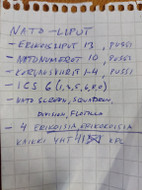 NATO-LIPUT
- ERIKOISLIPUT 13, PUSSI
- NATO NUMEROT 10, PUSSI
- KORVAUSVIIRIT 1-4, PUSSI
- ICS 6 (1,3,5,6,8,0)
- NATO SCREEN, SQUADRON,
DIVISION, FLOTILLA
- 4 ERIKOISIA, ERIKOKOISIA
KAIKKI YHT KPL